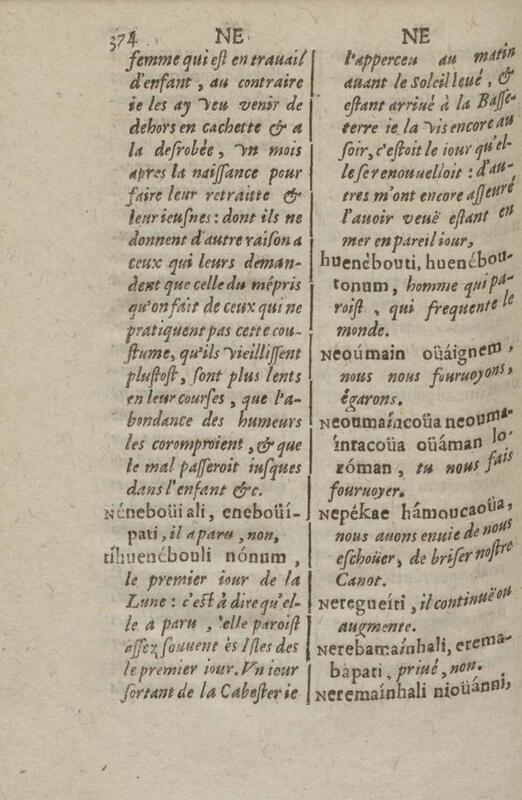 374 NE
femme qui est en trauail
d'enfant, au contraire
ie les ay veu venir de
dehors en cachette & a
la desrobée, vn mois
apres la naissance pour
faire leur retraitte &
leur ieusnes: dont ils ne
donnent d'autre raison a
ceux qui leurs deman-
dent que celle du mépris
qu'on fait de ceux qui ne
pratiquent pas cette cou-
stume, qu'ils vieillissent
plustost, sont plus lents
en leur courses, que l'a-
bondance des humeurs
les coromproient, & que
le mal passeroit iusques
dans l'enfant &c.
Néneboüi ali, eneboüí-
pati, il a paru, non,
tíhuenébouli nónum,
le premier iour de la
Lune: c'est à dire qu'el-
le a paru, elle paroist
assez souuent ès Isles des
le premier iour. Vn iour
sortant de la Cabesterie
NE
l'apperceu au matin
auant le Soleil leué, &
estant arriué à la Basse-
terre ie la vis encore au
soir, c'estoit le iour qu'el-
le se renouuelloit: d'au-
tres m'ont encore asseuré
l'auoir veuë estant en
mer en pareil iour,
huenébouti, huenébou-
tonum, homme qui pa-
roist, qui frequente le
monde.
Neoúmain oüáignem,
nous nous fouruoyons,
égarons.
Neoumaíncoüa neouma-
íntacoüa oüáman lo-
róman, tu nous fais
fouruoyer.
Nepékae hámoucaoüa,
nous auons enuie de nous
eschoüer, de briser nostre
Canot.
Neregueíti, il continuë ou
augmente.
Nerebamaínhali, erema-
bàpati, priué, non.
Neremaínhali nioüánni,